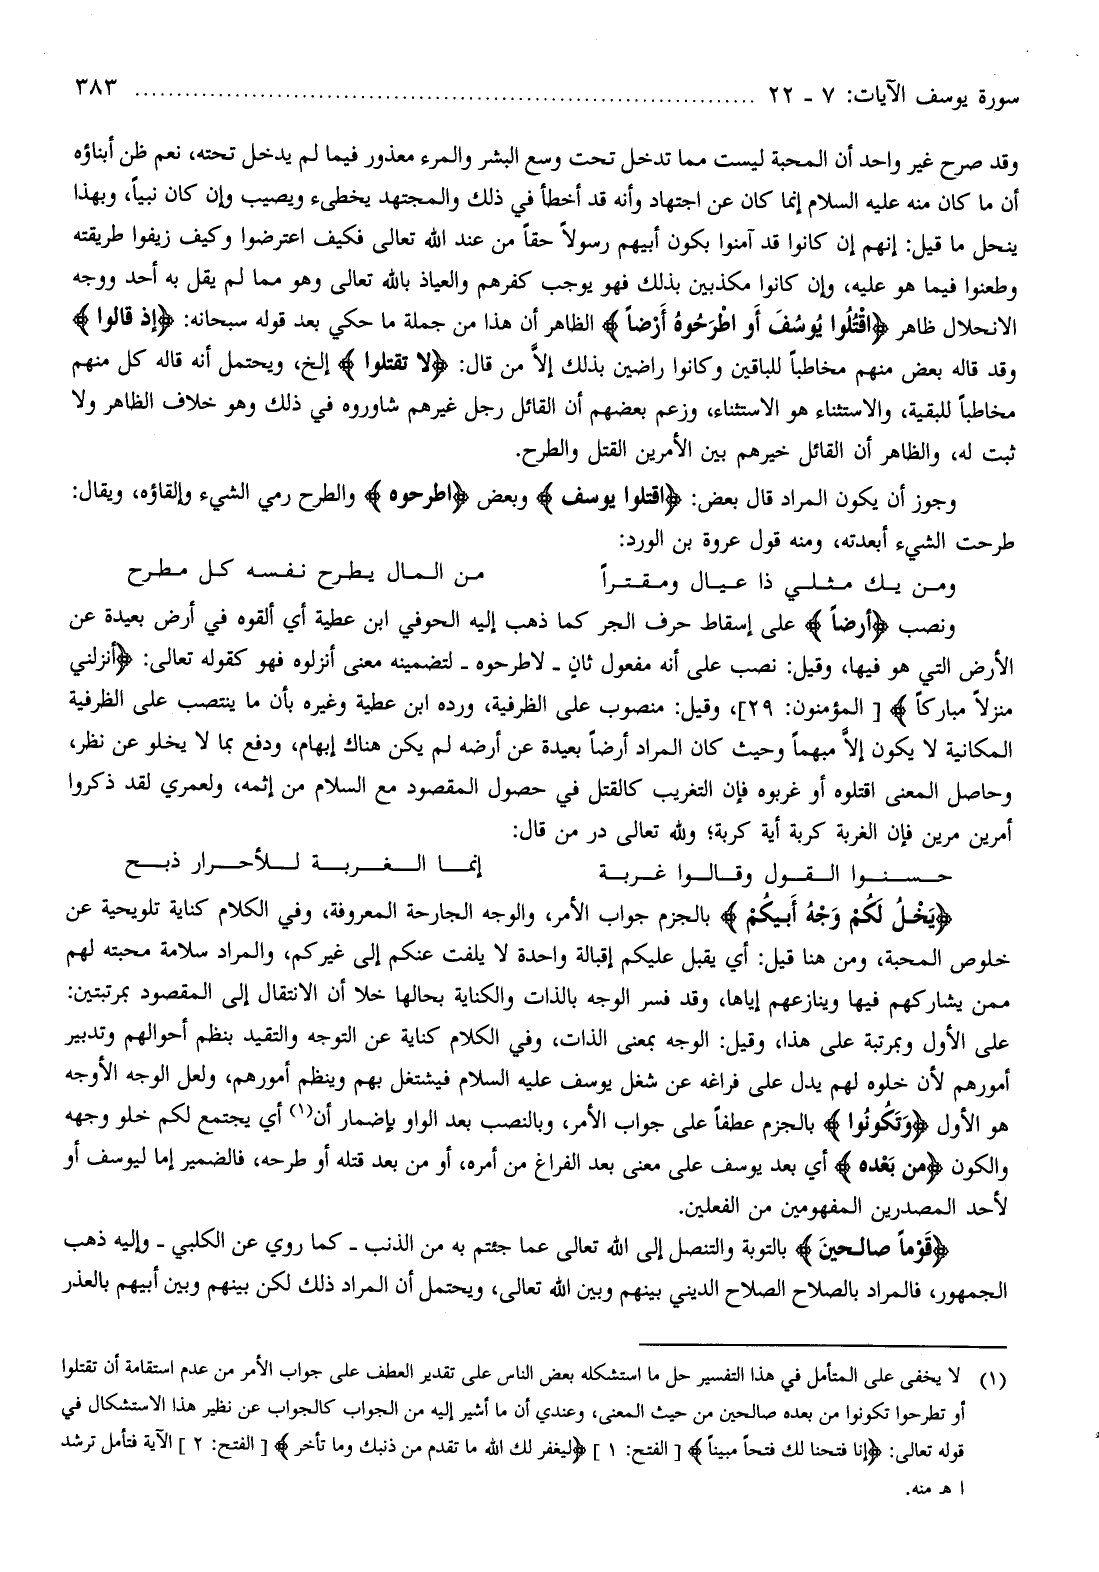 سورة يوسف الآيات: ٧ ـ ٢٢ ........................................................................ ٣٨٣
وقد صرح غير واحد أن المحبة ليست مما تدخل تحت وسع البشر والمرء معذور فيما لم يدخل تحته، نعم ظن أبناؤه
أن ما كان منه عليه السلام إنما كان عن اجتهاد وأنه قد أخطأ في ذلك والمجتهد يخطىء ويصيب وإن كان نبياً، وبهذا
ينحل ما قيل: إنهم إن كانوا قد آمنوا بكون أبيهم رسولاً حقاً من عند الله تعالى فكيف اعترضوا وكيف زيفوا طريقته
وطعنوا فيما هو عليه، وإن كانوا مكذبين بذلك فهو يوجب كفرهم والعياذ بالله تعالى وهو مما لم يقل به أحد ووجه
الانحلال ظاهر ﴿اقْتُلُوا يُوسُفَ أَو اطْرَحُوهُ أَرْضاً﴾ الظاهر أن هذا من جملة ما حكي بعد قوله سبحانه: ﴿إذ قالوا﴾
وقد قاله بعض منهم مخاطباً للباقين وكانوا راضين بذلك إلاَّ من قال: ﴿لا تقتلوا﴾ إلخ، ويحتمل أنه قاله كل منهم
مخاطباً للبقية، والاستثناء هو الاستثناء، وزعم بعضهم أن القائل رجل غيرهم شاوروه في ذلك وهو خلاف الظاهر ولا
ثبت له، والظاهر أن القائل خيرهم بين الأمرين القتل والطرح.
وجوز أن يكون المراد قال بعض: ﴿اقتلوا يوسف﴾ وبعض ﴿اطرحوه﴾ والطرح رمي الشيء وإلقاؤه، ويقال:
طرحت الشيء أبعدته، ومنه قول عروة بن الورد:
ومن يك مثلي ذا عيال ومقتراً من المال يطرح نفسه كل مطرح
ونصب ﴿أرضاً﴾ على إسقاط حرف الجر كما ذهب إليه الحوفي ابن عطية أي ألقوه في أرض بعيدة عن
الأرض التي هو فيها، وقيل: نصب على أنه مفعول ثانٍ ـ لاطرحوه ـ لتضمينه معنى أنزلوه فهو كقوله تعالى: ﴿أنزلني
منزلاً مباركاً﴾ [ المؤمنون: ٢٩]، وقيل: منصوب على الظرفية، ورده ابن عطية وغيره بأن ما ينتصب على الظرفية
المكانية لا يكون إلاَّ مبهماً وحيث كان المراد أرضاً بعيدة عن أرضه لم يكن هناك إبهام، ودفع بما لا يخلو عن نظر،
وحاصل المعنى اقتلوه أو غربوه فإن التغريب كالقتل في حصول المقصود مع السلام من إثمه، ولعمري لقد ذكروا
أمرين مرين فإن الغربة كربة أية كربة؛ ولله تعالى در من قال:
حسنوا القول وقالوا غربة إنما الغربة للأحرار ذبح
﴿يَخْلُ لَكُمْ وَجْهُ أَبيكُمْ﴾ بالجزم جواب الأمر، والوجه الجارحة المعروفة، وفي الكلام كناية تلويحية عن
خلوص المحبة، ومن هنا قيل: أي يقبل عليكم إقبالة واحدة لا يلفت عنكم إلى غيركم، والمراد سلامة محبته لهم
ممن يشاركهم فيها وينازعهم إياها، وقد فسر الوجه بالذات والكناية بحالها خلا أن الانتقال إلى المقصود بمرتبتين:
على الأول وبمرتبة على هذا، وقيل: الوجه بمعنى الذات، وفي الكلام كناية عن التوجه والتقيد بنظم أحوالهم وتدبير
أمورهم لأن خلوه لهم يدل على فراغه عن شغل يوسف عليه السلام فيشتغل بهم وينظم أمورهم، ولعل الوجه الأوجه
هو الأول ﴿وَتَكُونُوا﴾ بالجزم عطفاً على جواب الأمر، وبالنصب بعد الواو بإضمار أن(١) أي يجتمع لكم خلو وجهه
والكون ﴿من بَعْده﴾ أي بعد يوسف على معنى بعد الفراغ من أمره، أو من بعد قتله أو طرحه، فالضمير إما ليوسف أو
لأحد المصدرين المفهومين من الفعلين.
﴿قَوْماً صالحينَ﴾ بالتوبة والتنصل إلى الله تعالى عما جئتم به من الذنب ـ كما روي عن الكلبي ـ وإليه ذهب
الجمهور، فالمراد بالصلاح الصلاح الديني بينهم وبين الله تعالى، ويحتمل أن المراد ذلك لكن بينهم وبين أبيهم بالعذر
(١) لا يخفى على المتأمل في هذا التفسير حل ما استشكله بعض الناس على تقدير العطف على جواب الأمر من عدم استقامة أن تقتلوا
أو تطرحوا تكونوا من بعده صالحين من حيث المعنى، وعندي أن ما أشير إليه من الجواب كالجواب عن نظير هذا الاستشكال في
قوله تعالى: ﴿إنا فتحنا لك فتحاً مبيناً﴾ [ الفتح: ١ ] ﴿ليغفر لك الله ما تقدم من ذنبك وما تأخر﴾ [ الفتح: ٢ ] الآية فتأمل ترشد
ا هـ منه.